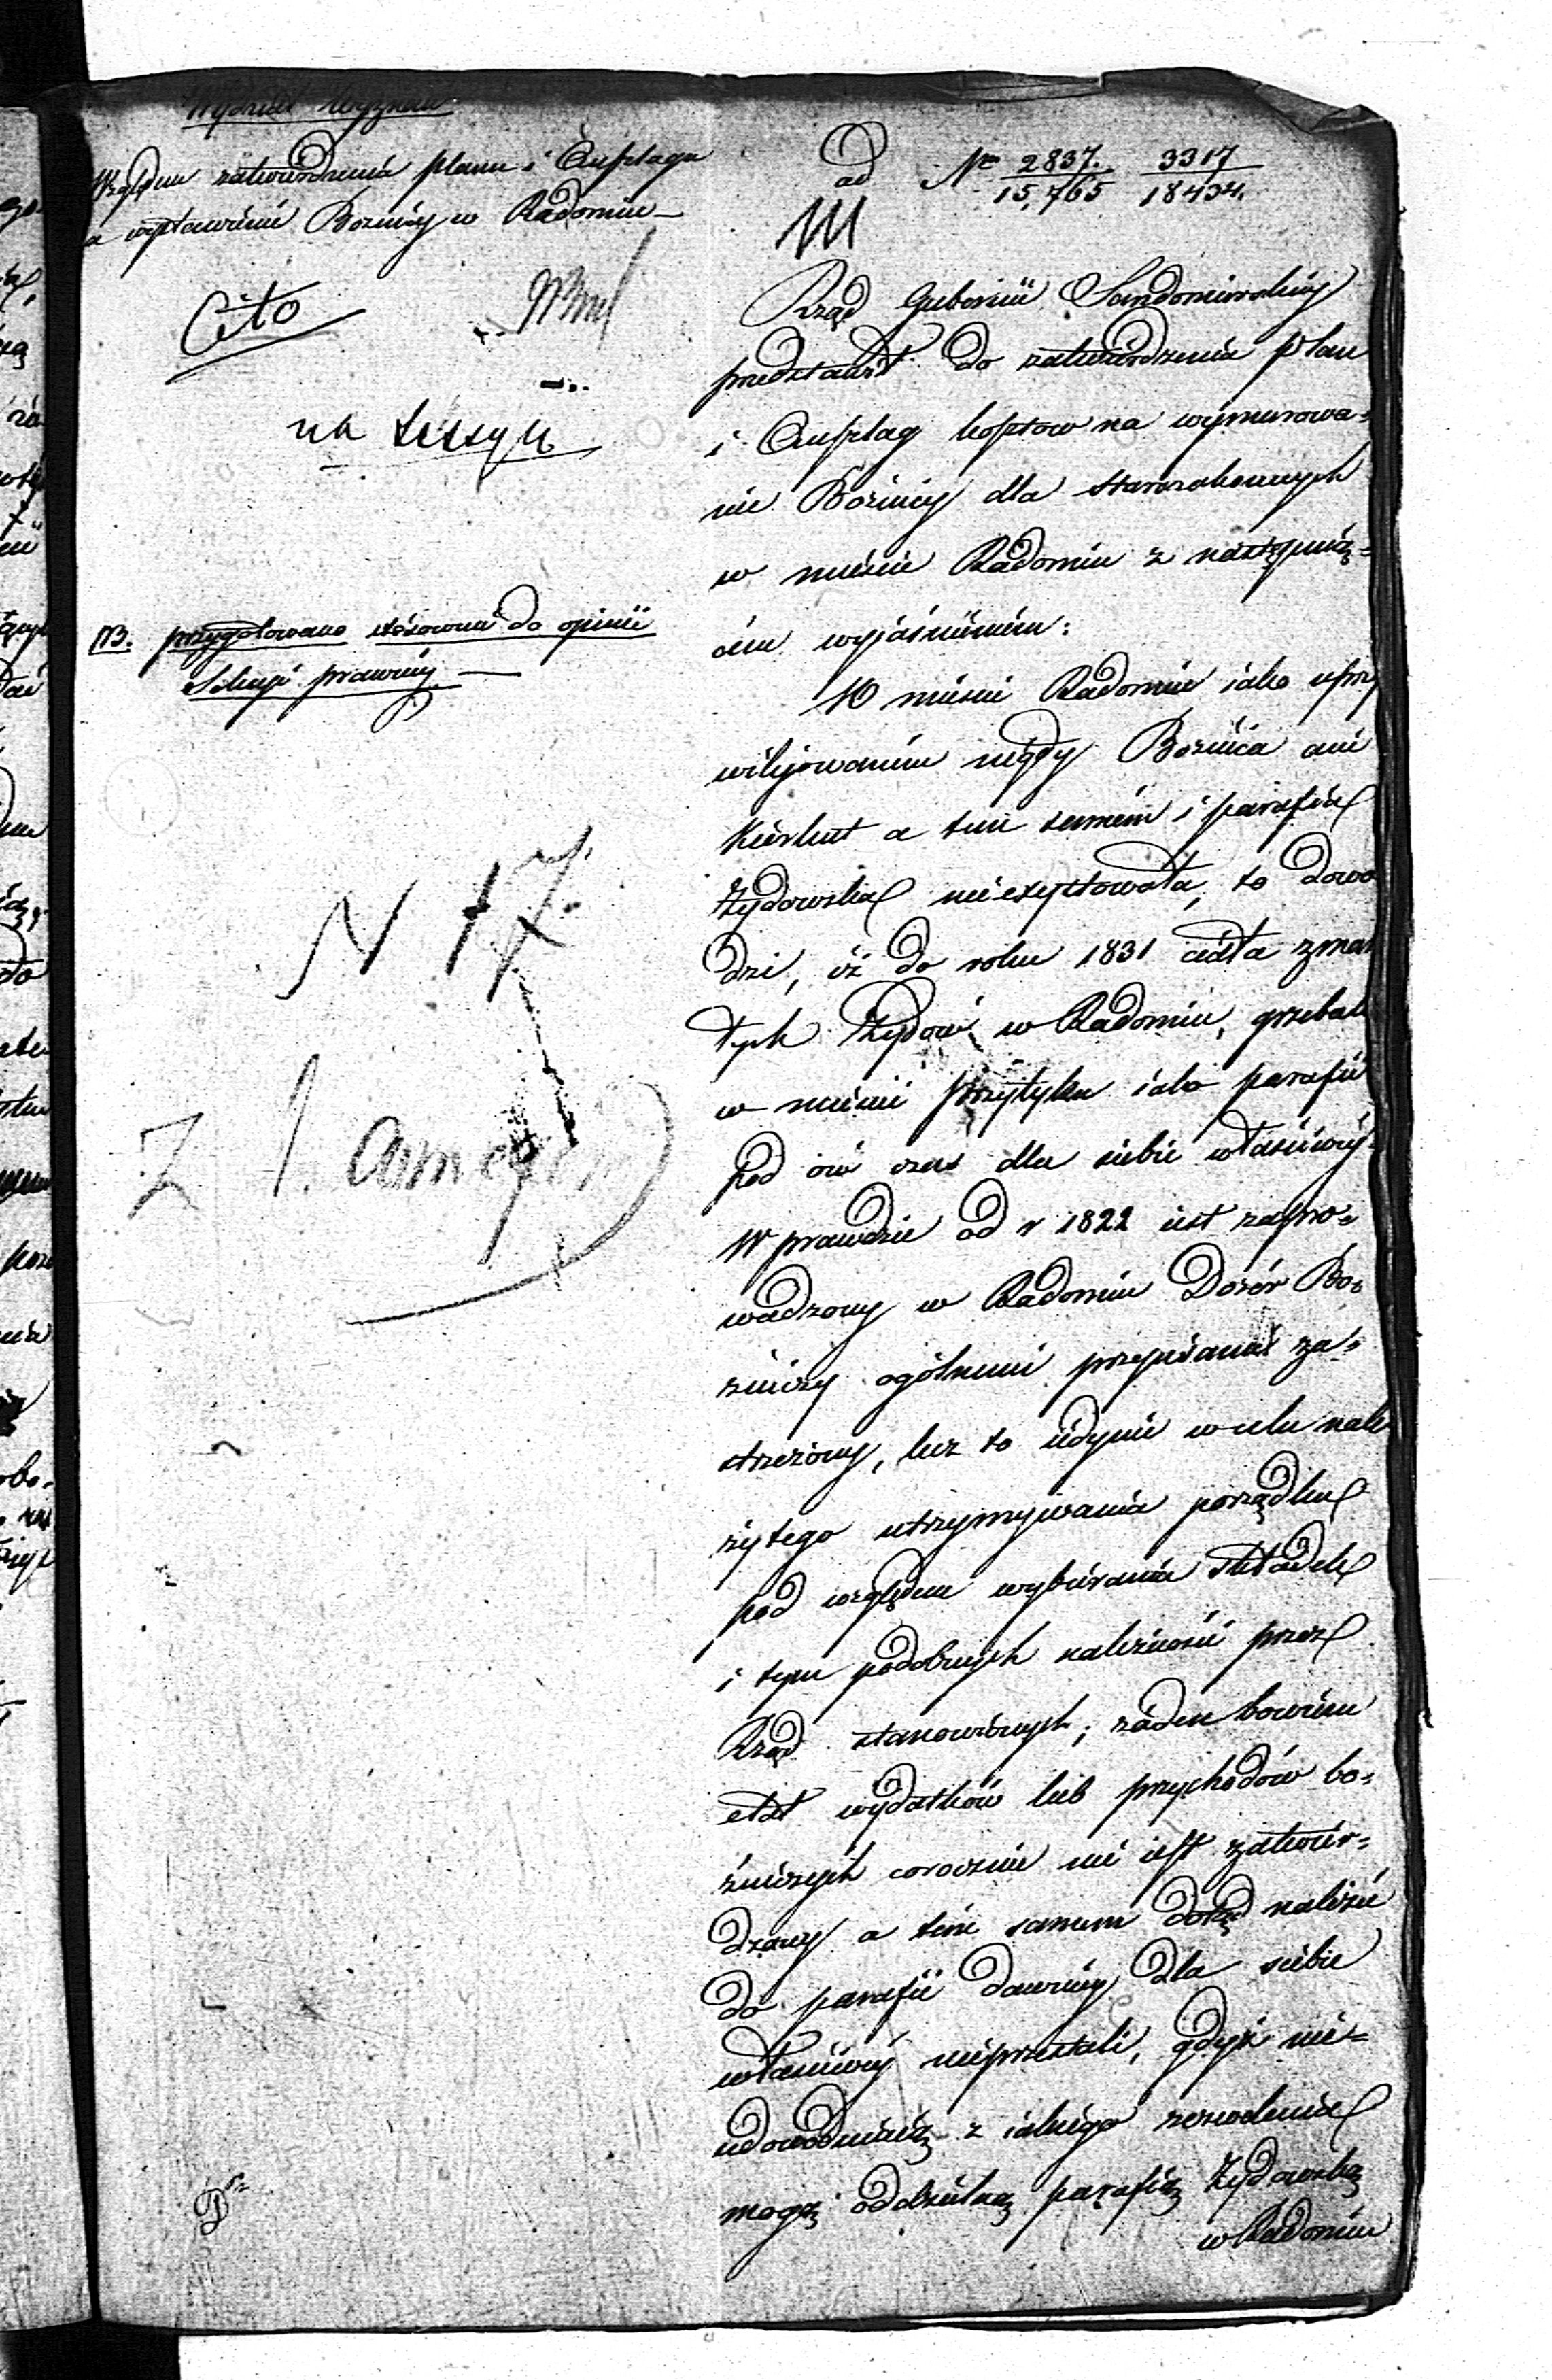 Wydział Wyznań
Względem zatwierdzenia planu i Anszlagu
na wystawienie Bożnicy w Radomiu —
Cito
na sessyę
NB. przygotowano stósownie do opinii
Sekcyi prawnéj —
N 17.
Z
ad Nro 2837. 3317
15,765 18434.
Rząd Gubernii Sandomierskiéj
przedstawił do zatwierdzenia plan
i Anszlag kosztow na wymurowa=
nie Bożnicy dla starozakonnych
w mieście Radomiu z następuią=
cém wyjaśnieniem:
W mieście Radomiu iako uprzy
wilejowaném nigdy Boznica ani
Kierkut a tém samém i parafia
Żydowska nieexystowała, to dowo
dzi, iż do roku 1831 ciała zmar
łych Żydów w Radomiu, grzebali
w mieście Przytyku iako parafii
pod ów czas dla siebie właściwéj.
W prawdzie od r 1822 iest zapro=
wadzony w Radomiu Dozór Bo=
żniczy ogólnemi przepisami za=
strzeżony, lecz to iedynie w celu nale
żytego utrzymywania porządku
pod względem wybierania składek
i tym podobnych należności przez
Rząd stanowionych; żaden bowiem
etat wydatków lub przychodów bo=
żniczych corocznie nie iest zatwier=
dzany a tém samem dotąd należeć
do parafii dawniéj dla siebie
właściwéj nieprzestali, gdyż nie=
udowodniaią z iakiego zezwolenia
mogą oddzielną parafią Żydowską
w Radomiu